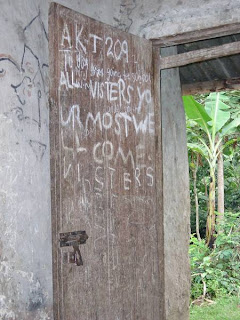 AKT 209
ALL VISTERS YO
UR MOST WE
L COME.
VISTERS